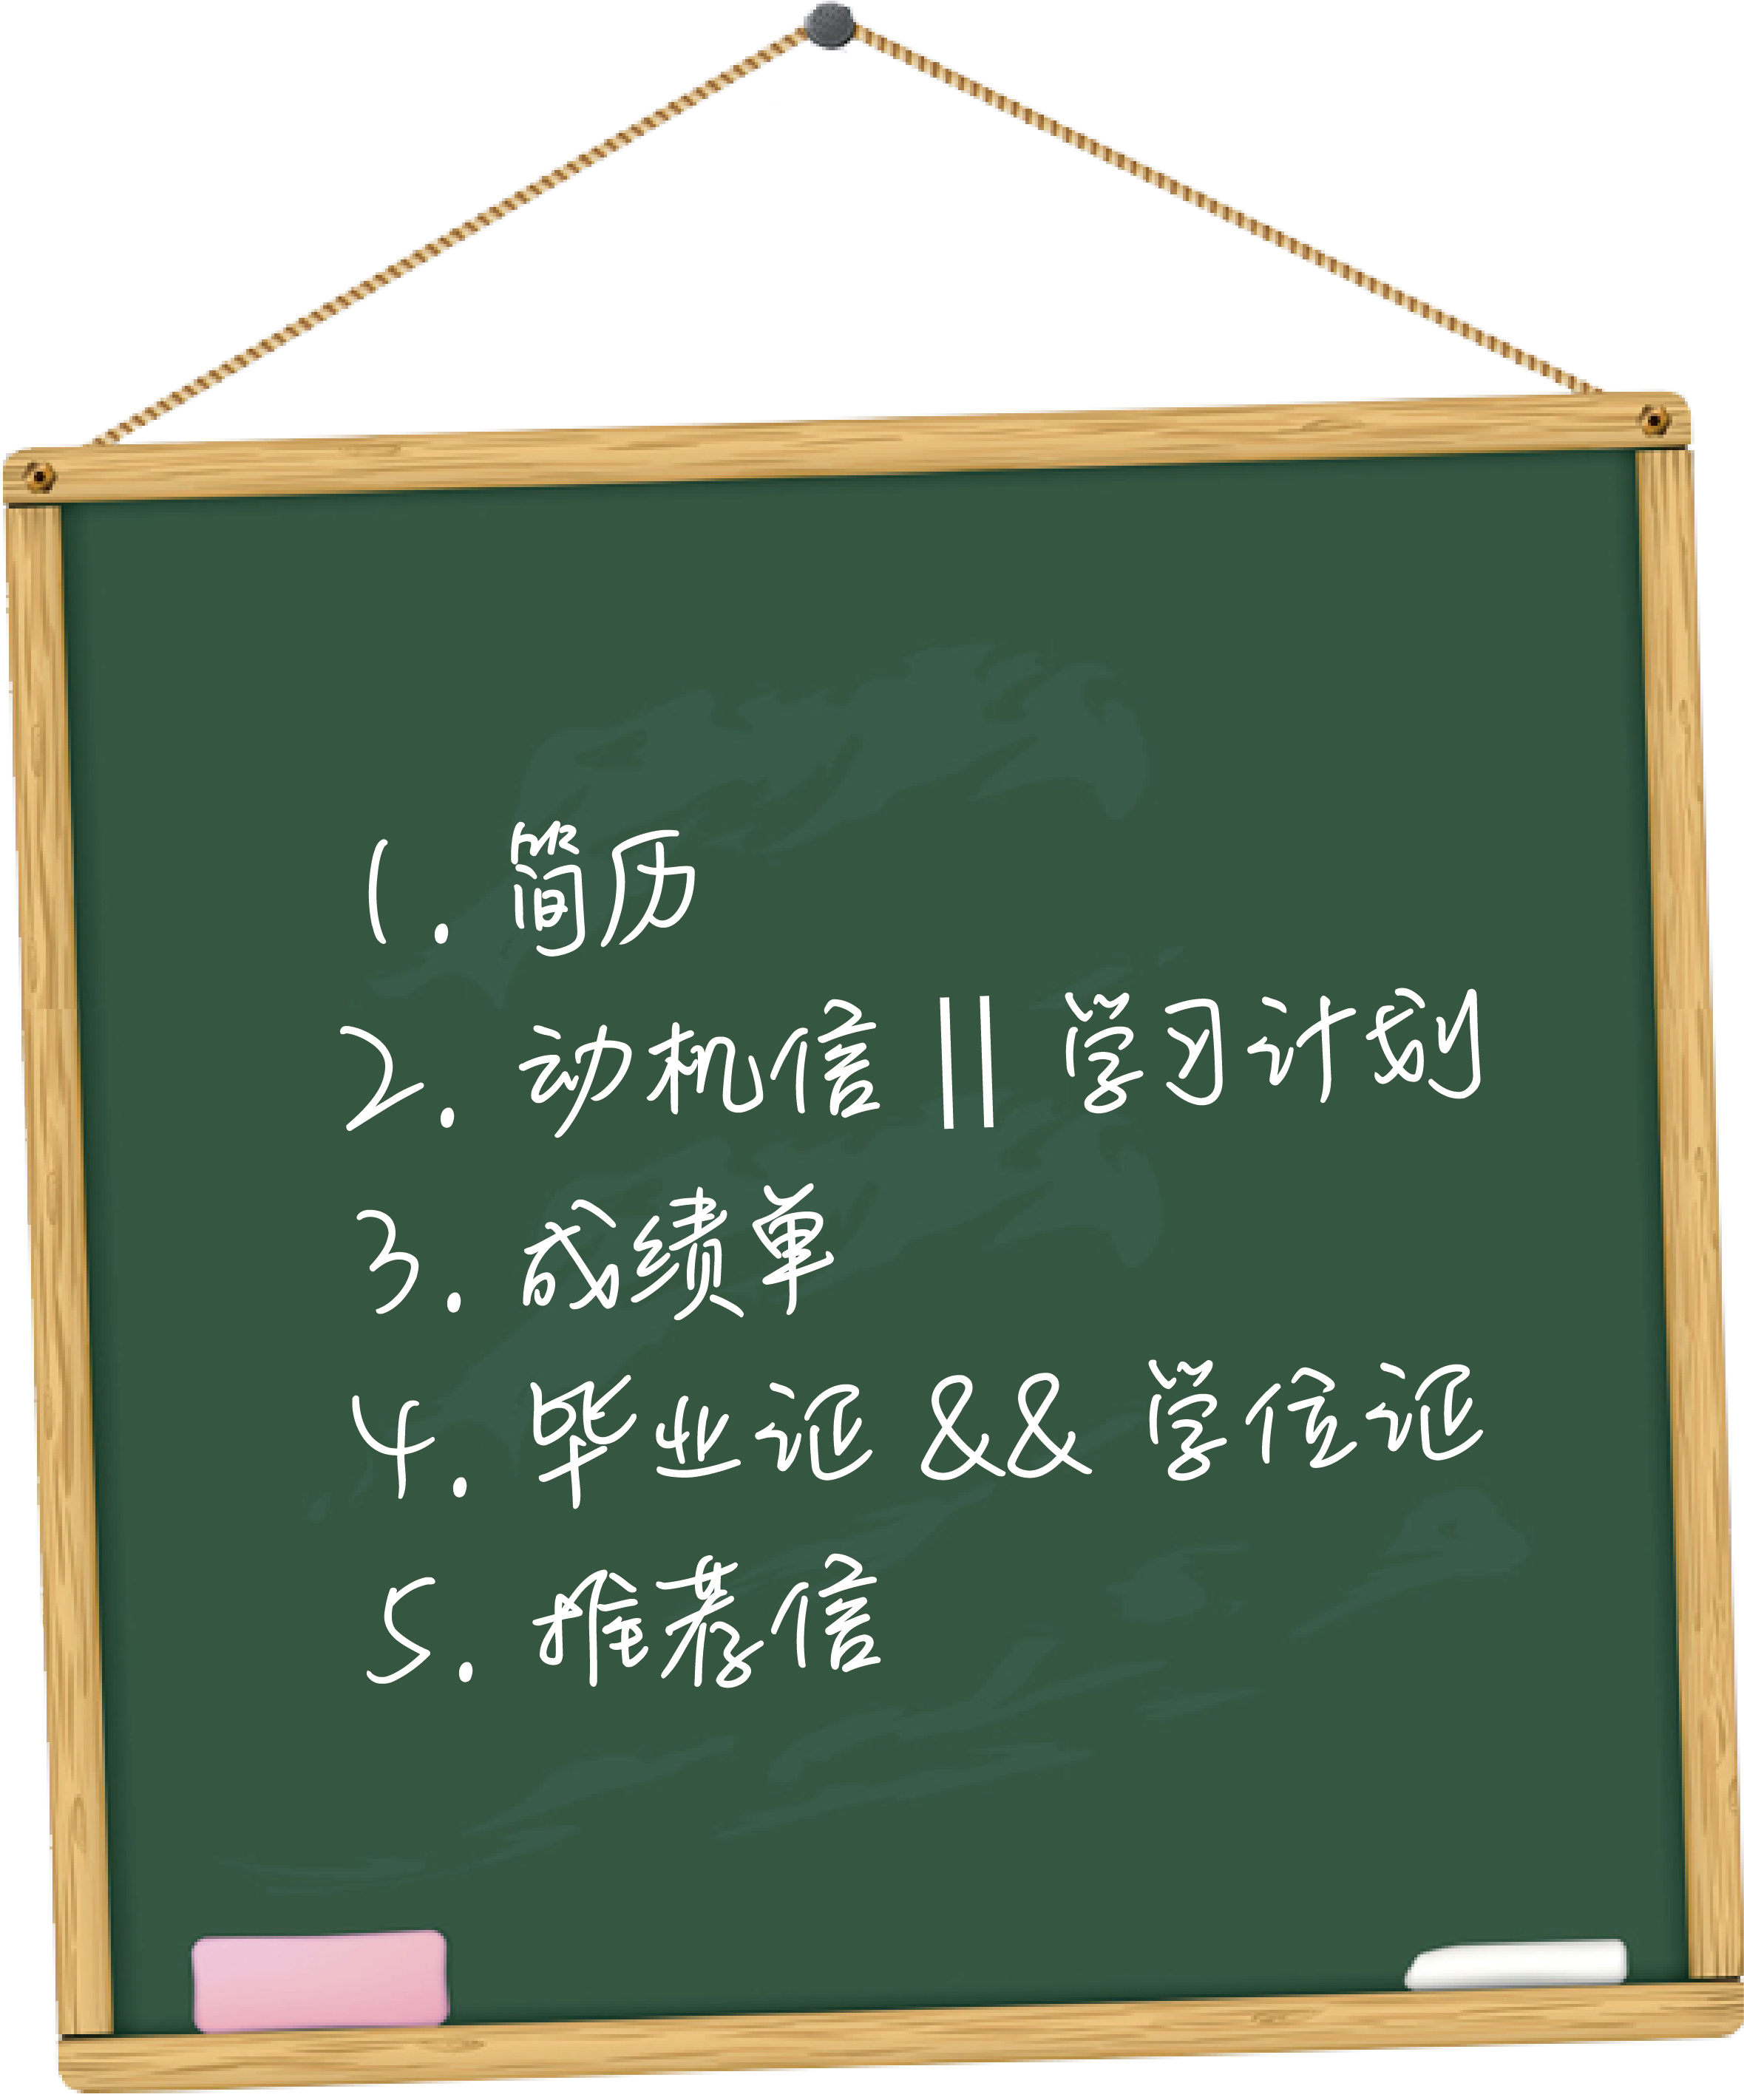 1. 简历
2. 动机信 || 学习计划
3. 成绩单
4. 毕业证 && 学位证
5. 推荐信